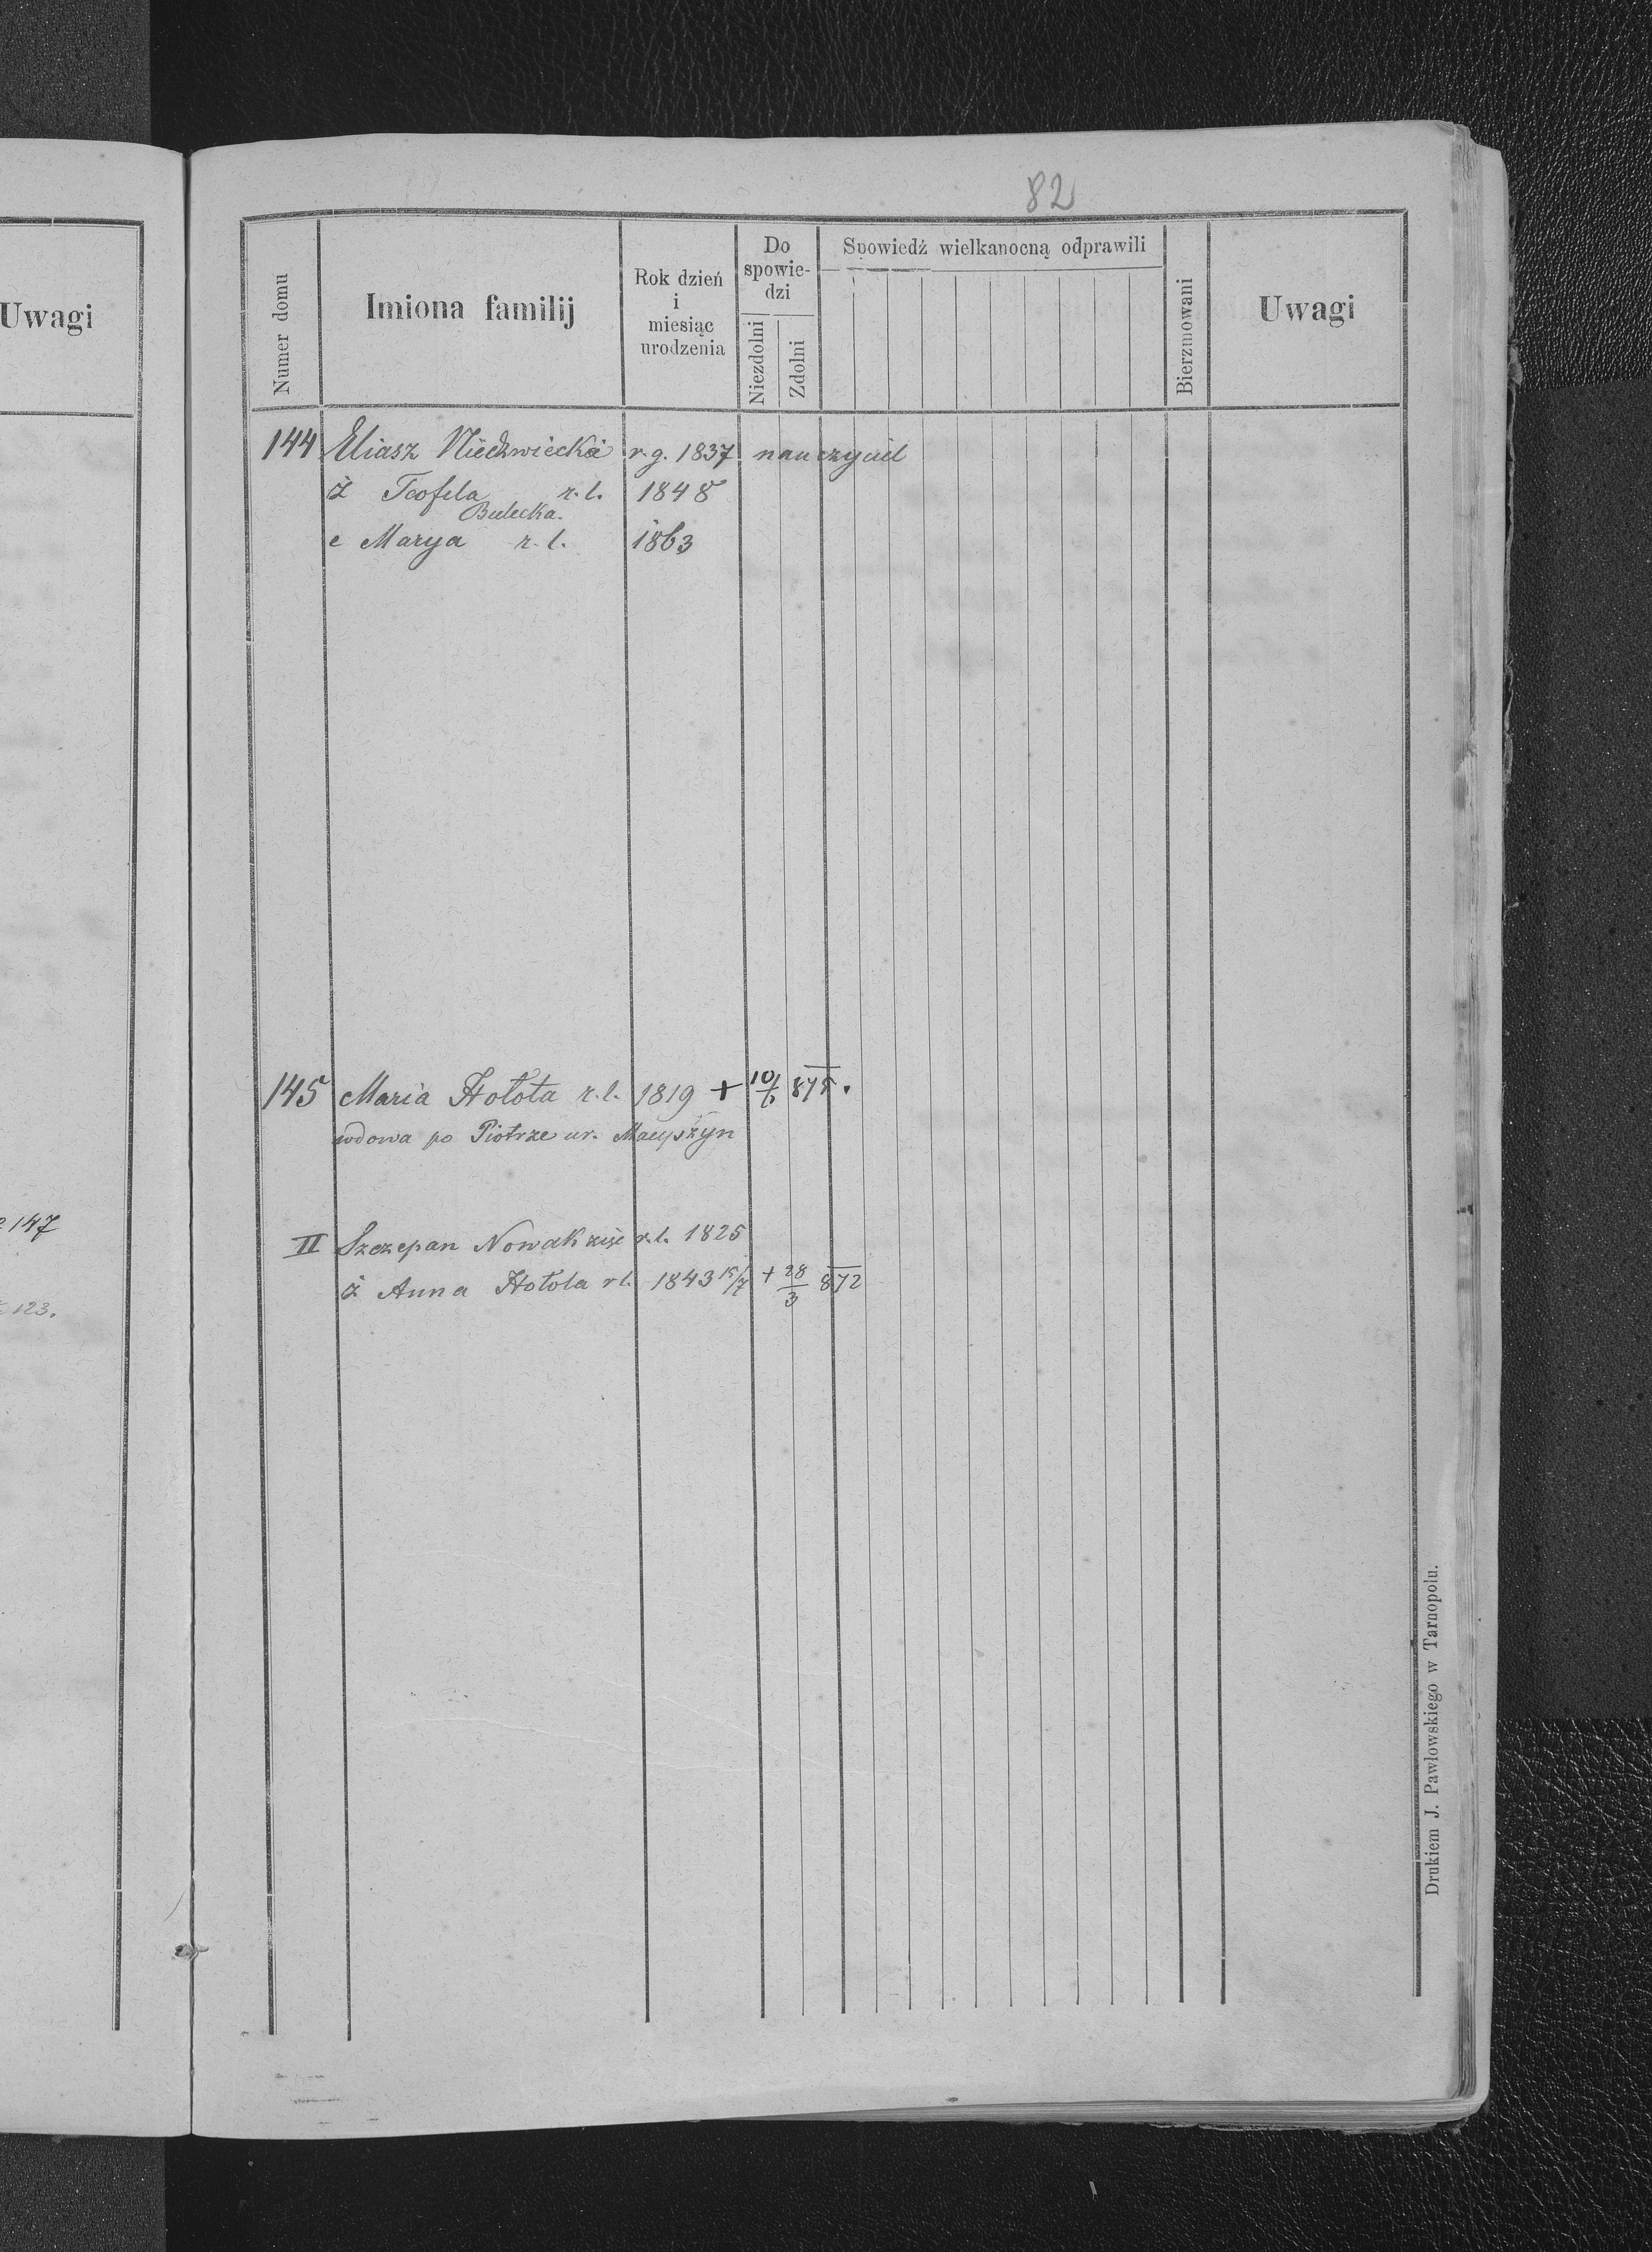 82
Uwagi
Numer domu
Imiona familij
Rok dzień
i
miesiąc
urodzenia
Do
spowie-
dzi
Niezdolni
Zdolni
Spowiedź wielkanocną odprawili
Bierzmowani
Uwagi
144 Eliasz Niedzwiecki r.g. 1837 nauczyciel
ż Teofila r.l. 1848
c Marya r.l. 1863
145 Maria Hołota r.l. 1819 + 10/6 875.
wdowa po Piotrze ur. Macyszyn
147
II Szczepan Nowak r.l. 1825
ż Anna Hołota rl. 1843 15/7 + 28/3 872
123.
Drukiem J. Pawłowskiego w Tarnopolu.